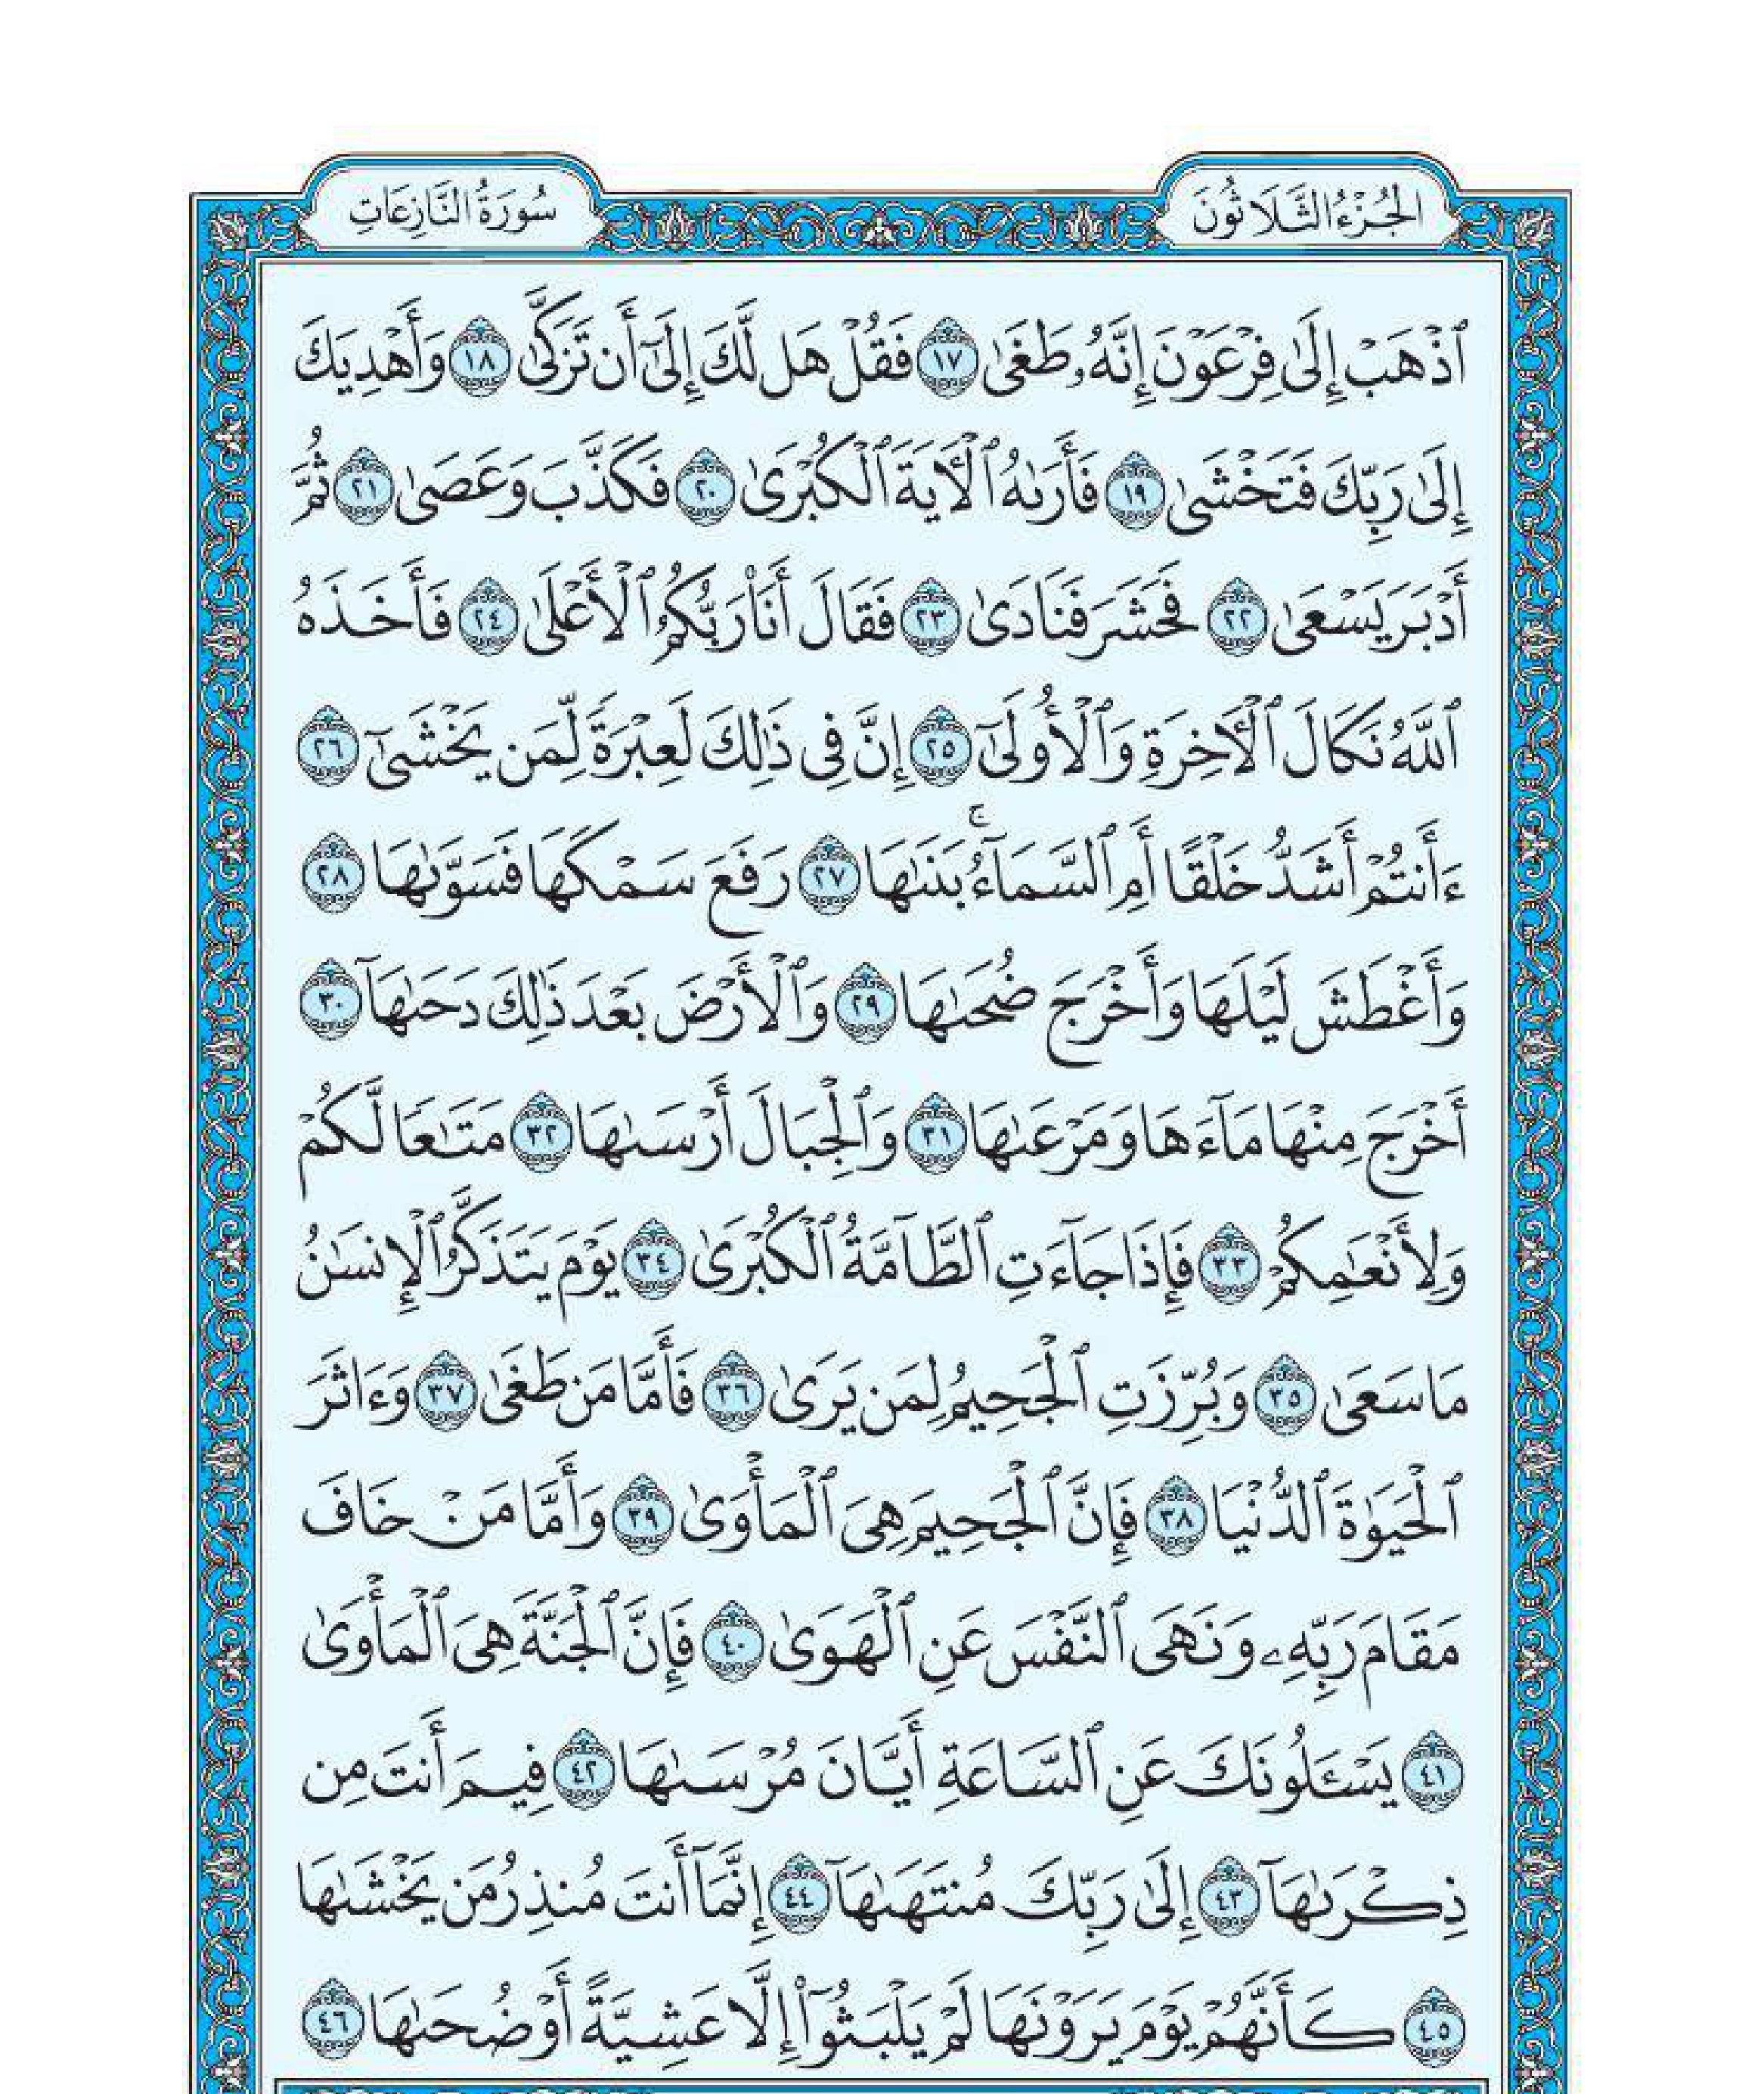 الجُزْءُ الثَّلَاثُونَ
سُورَةُ النَّازِعَاتِ
ٱذۡهَبۡ إِلَىٰ فِرۡعَوۡنَ إِنَّهُۥ طَغَىٰ ١٧ فَقُلۡ هَل لَّكَ إِلَىٰٓ أَن تَزَكَّىٰ ١٨ وَأَهۡدِيَكَ
إِلَىٰ رَبِّكَ فَتَخۡشَىٰ ١٩ فَأَرَىٰهُ ٱلۡأٓيَةَ ٱلۡكُبۡرَىٰ ٢٠ فَكَذَّبَ وَعَصَىٰ ٢١ ثُمَّ
أَدۡبَرَ يَسۡعَىٰ ٢٢ فَحَشَرَ فَنَادَىٰ ٢٣ فَقَالَ أَنَا۠ رَبُّكُمُ ٱلۡأَعۡلَىٰ ٢٤ فَأَخَذَهُ
ٱللَّهُ نَكَالَ ٱلۡأٓخِرَةِ وَٱلۡأُولَىٰٓ ٢٥ إِنَّ فِي ذَٰلِكَ لَعِبۡرَةٗ لِّمَن يَخۡشَىٰٓ ٢٦
ءَأَنتُمۡ أَشَدُّ خَلۡقًا أَمِ ٱلسَّمَآءُۚ بَنَىٰهَا ٢٧ رَفَعَ سَمۡكَهَا فَسَوَّىٰهَا ٢٨
وَأَغۡطَشَ لَيۡلَهَا وَأَخۡرَجَ ضُحَىٰهَا ٢٩ وَٱلۡأَرۡضَ بَعۡدَ ذَٰلِكَ دَحَىٰهَآ ٣٠
أَخۡرَجَ مِنۡهَا مَآءَهَا وَمَرۡعَىٰهَا ٣١ وَٱلۡجِبَالَ أَرۡسَىٰهَا ٣٢ مَتَٰعٗا لَّكُمۡ
وَلِأَنۡعَٰمِكُمۡ ٣٣ فَإِذَا جَآءَتِ ٱلطَّآمَّةُ ٱلۡكُبۡرَىٰ ٣٤ يَوۡمَ يَتَذَكَّرُ ٱلۡإِنسَٰنُ
مَا سَعَىٰ ٣٥ وَبُرِّزَتِ ٱلۡجَحِيمُ لِمَن يَرَىٰ ٣٦ فَأَمَّا مَن طَغَىٰ ٣٧ وَءَاثَرَ
ٱلۡحَيَوٰةَ ٱلدُّنۡيَا ٣٨ فَإِنَّ ٱلۡجَحِيمَ هِيَ ٱلۡمَأۡوَىٰ ٣٩ وَأَمَّا مَنۡ خَافَ
مَقَامَ رَبِّهِۦ وَنَهَى ٱلنَّفۡسَ عَنِ ٱلۡهَوَىٰ ٤٠ فَإِنَّ ٱلۡجَنَّةَ هِيَ ٱلۡمَأۡوَىٰ
٤١ يَسۡـَٔلُونَكَ عَنِ ٱلسَّاعَةِ أَيَّانَ مُرۡسَىٰهَا ٤٢ فِيمَ أَنتَ مِن
ذِكۡرَىٰهَآ ٤٣ إِلَىٰ رَبِّكَ مُنتَهَىٰهَآ ٤٤ إِنَّمَآ أَنتَ مُنذِرُ مَن يَخۡشَىٰهَا
٤٥ كَأَنَّهُمۡ يَوۡمَ يَرَوۡنَهَا لَمۡ يَلۡبَثُوٓاْ إِلَّا عَشِيَّةً أَوۡ ضُحَىٰهَا ٤٦